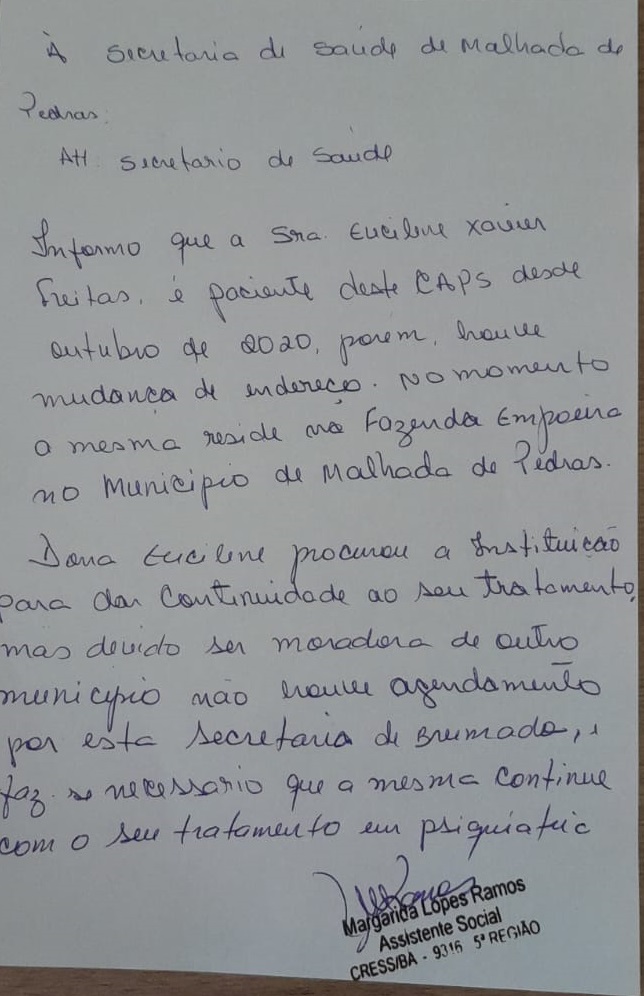 À Secretaria de Saúde de Malhada de
Pedras:
Att: Secretario de Saúde
Informo que a Sra. Eucilene Xavier
Freitas, é paciente deste CAPS desde
outubro de 2020, porem, houve
mudança de endereço. No momento
a mesma reside na Fazenda Empoeira
no Municipio de Malhada de Pedras.
Dona Eucilene procurou a Instituição
para dar Continuidade ao seu tratamento,
mas devido ser moradora de outro
municipio não houve agendamento
por esta secretaria de Brumado,
faz se necessario que a mesma continue
com o seu tratamento em psiquiatric
Margarida Lopes Ramos
Assistente Social
CRESS/BA - 9316 5ª REGIÃO